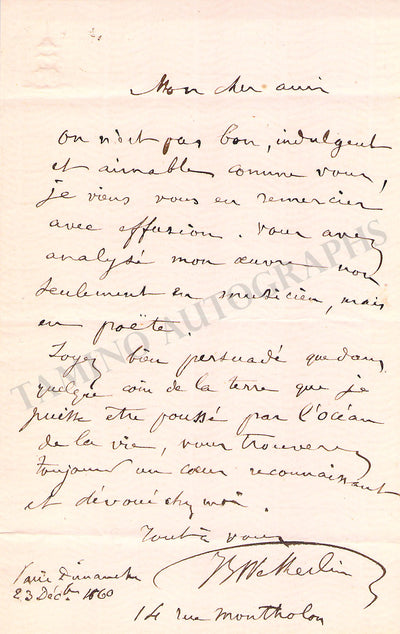 Mon cher ami
on n'est pas bon, indulgent
et aimable comme vous,
je viens vous en remercier
avec effusion. Vous avez
analysé mon œuvre non
seulement en musicien, mais
en poëte.
Soyez bien persuadé que dans
quelque coin de la terre que je
puisse être poussé par l'océan
de la vie, vous trouverez
toujours un cœur reconnaissant
et dévoué chez moi.
Tout à vous
JBWekerlin
Paris Dimanche
23 Déc. 1860
14 rue Montholon
TAMINO AUTOGRAPHS